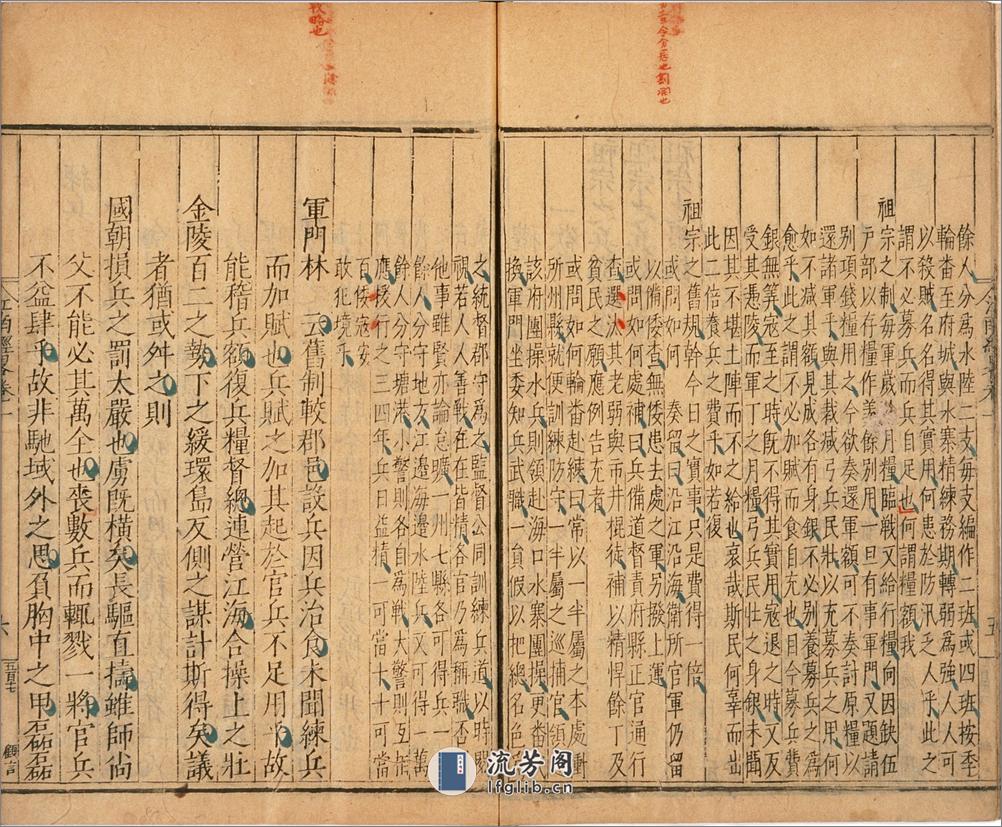 餘人分爲水陸二支每支編作二班或四班按季
輪畨至府城與水寨精練務期轉弱爲強人人可
以殺賊名得其實用何患於防汛之乏人乎此之
謂不必募兵而兵自足也何謂糧額我
祖宗之制每軍歲有月糧臨戰又給行糧向因缺伍
戸部以存糧作羨餘別用一旦有事軍門又題請
別項錢糧用之今欲奏還軍額可不奏討原糧以
還諸軍乎與其裁減弓兵民壯以充募兵之用何
如不減其額見成各有身銀不必別養募兵之爲
愈乎此之謂不必加賦而食自充也日今募兵費
銀無筭寇至之時旣不得其實用寇退之時又反
受其憑陵而軍丁之月糧弓兵民壯之身銀未聞
因其不堪土陣而不之給也哀哉斯民何辜而出
此二倍養兵之費乎如若復
祖宗之舊規幹今日之實事只是費得一倍
或問如何 奏留曰沿江沿海衛所官軍仍留
以備倭查無倭患去處之軍另撥上運
或問如何處補曰兵備道督責府縣正官通行
查選汰其老弱與市井棍徒補以精悍餘丁及
貧民之願應例告充者
或問如何輪畨赴練曰常以一半屬之本處衝
所州縣就便防守一半屬之廵捕官領赴
該府團操水兵則領赴海口水寨團操更畨疊
換軍門坐委知兵武職一員假以把總名色
之統督郡守爲之監督公同訓練兵道以時賜
視若人人善戰在在皆精各官乃爲稱職否
他事雖賢亦論怠曠一州七縣各可得兵一
餘人分守地方江邉海邉水陸兵又可得一萬
餘人分守塘港小警則各自爲戰大警則互相
應援行之三四年兵日益精一可當十十可當
百倭寇安
敢犯境乎
軍門林 云舊制較郡邑設兵因兵治食未聞練兵
而加賦也兵賦之加其起於官兵不足用乎故
能稽兵額復兵糧督總連營江海合操上之壯
金陵百二之勢下之緩環島反側之謀計斯得矣議
者猶或舛之則
國朝損兵之罰太嚴也虜旣橫矣長驅直擣雖師尚
父不能必其萬全也喪數兵而輒戮一將官兵
不盆肆乎故非馳域外之思負胸中之甲磊磊
江南經畧卷一
五
六
流芳阁
lfglib.cn